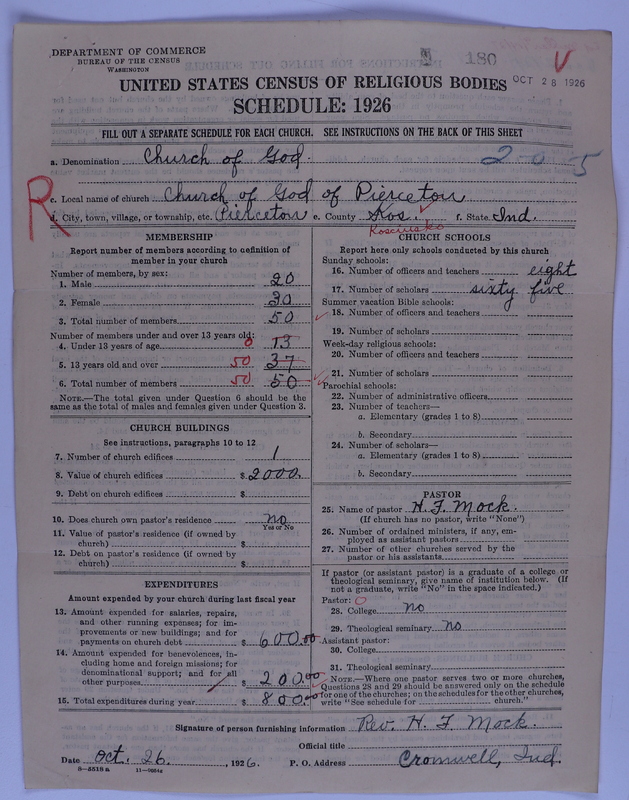 DEPARTMENT OF COMMERCE
BUREAU OF THE CENSUS
WASHINGTON
180
UNITED STATES CENSUS OF RELIGIOUS BODIES
OCT 28 1926
SCHEDULE: 1926
FILL OUT A SEPARATE SCHEDULE FOR EACH CHURCH. SEE INSTRUCTIONS ON THE BACK OF THIS SHEET
a. Denomination Church of God.
2 0 5
R
c. Local name of church Church of God of Pierceton
d. City, town, village, or township, etc. Pierceton e. County Kos. f. State Ind.
Kosciusko
MEMBERSHIP
Report number of members according to definition of
member in your church
Number of members, by sex:
1. Male 20
2. Female 30
3. Total number of members 50
Number of members under and over 13 years old:
4. Under 13 years of age 0 13
5. 13 years old and over 50 37
6. Total number of members 50 50
NOTE.—The total given under Question 6 should be the
same as the total of males and females given under Question 3.
CHURCH BUILDINGS
See instructions, paragraphs 10 to 12
7. Number of church edifices 1
8. Value of church edifices $ 2000.
9. Debt on church edifices $
10. Does church own pastor's residence no
Yes or No
11. Value of pastor's residence (if owned by
church) $
12. Debt on pastor's residence (if owned by
church) $
EXPENDITURES
Amount expended by your church during last fiscal year
13. Amount expended for salaries, repairs,
and other running expenses; for im-
provements or new buildings; and for
payments on church debt $ 600.00
14. Amount expended for benevolences, in-
cluding home and foreign missions; for
denominational support; and for all
other purposes $ 200.00
15. Total expenditures during year $ 800.00
CHURCH SCHOOLS
Report here only schools conducted by this church
Sunday schools:
16. Number of officers and teachers eight
17. Number of scholars sixty five
Summer vacation Bible schools:
18. Number of officers and teachers
19. Number of scholars
Week-day religious schools:
20. Number of officers and teachers
21. Number of scholars
Parochial schools:
22. Number of administrative officers
23. Number of teachers—
a. Elementary (grades 1 to 8)
b. Secondary
24. Number of scholars—
a. Elementary (grades 1 to 8)
b. Secondary
PASTOR
25. Name of pastor H. F. Mock.
(If church has no pastor, write "None")
26. Number of ordained ministers, if any, em-
ployed as assistant pastors
27. Number of other churches served by the
pastor or his assistants
If pastor (or assistant pastor) is a graduate of a college or
theological seminary, give name of institution below. (If
not a graduate, write "No" in the space indicated.)
Pastor: 0
28. College no
29. Theological seminary no
Assistant pastor:
30. College
31. Theological seminary
NOTE.—Where one pastor serves two or more churches,
Questions 28 and 29 should be answered only on the schedule
for one of the churches; on the schedules for the other churches,
write "See schedule for church."
Signature of person furnishing information Rev. H. F. Mock.
Official title
Date Oct. 26, 1926. P. O. Address Cromwell, Ind.
8—5518a 11—9064a